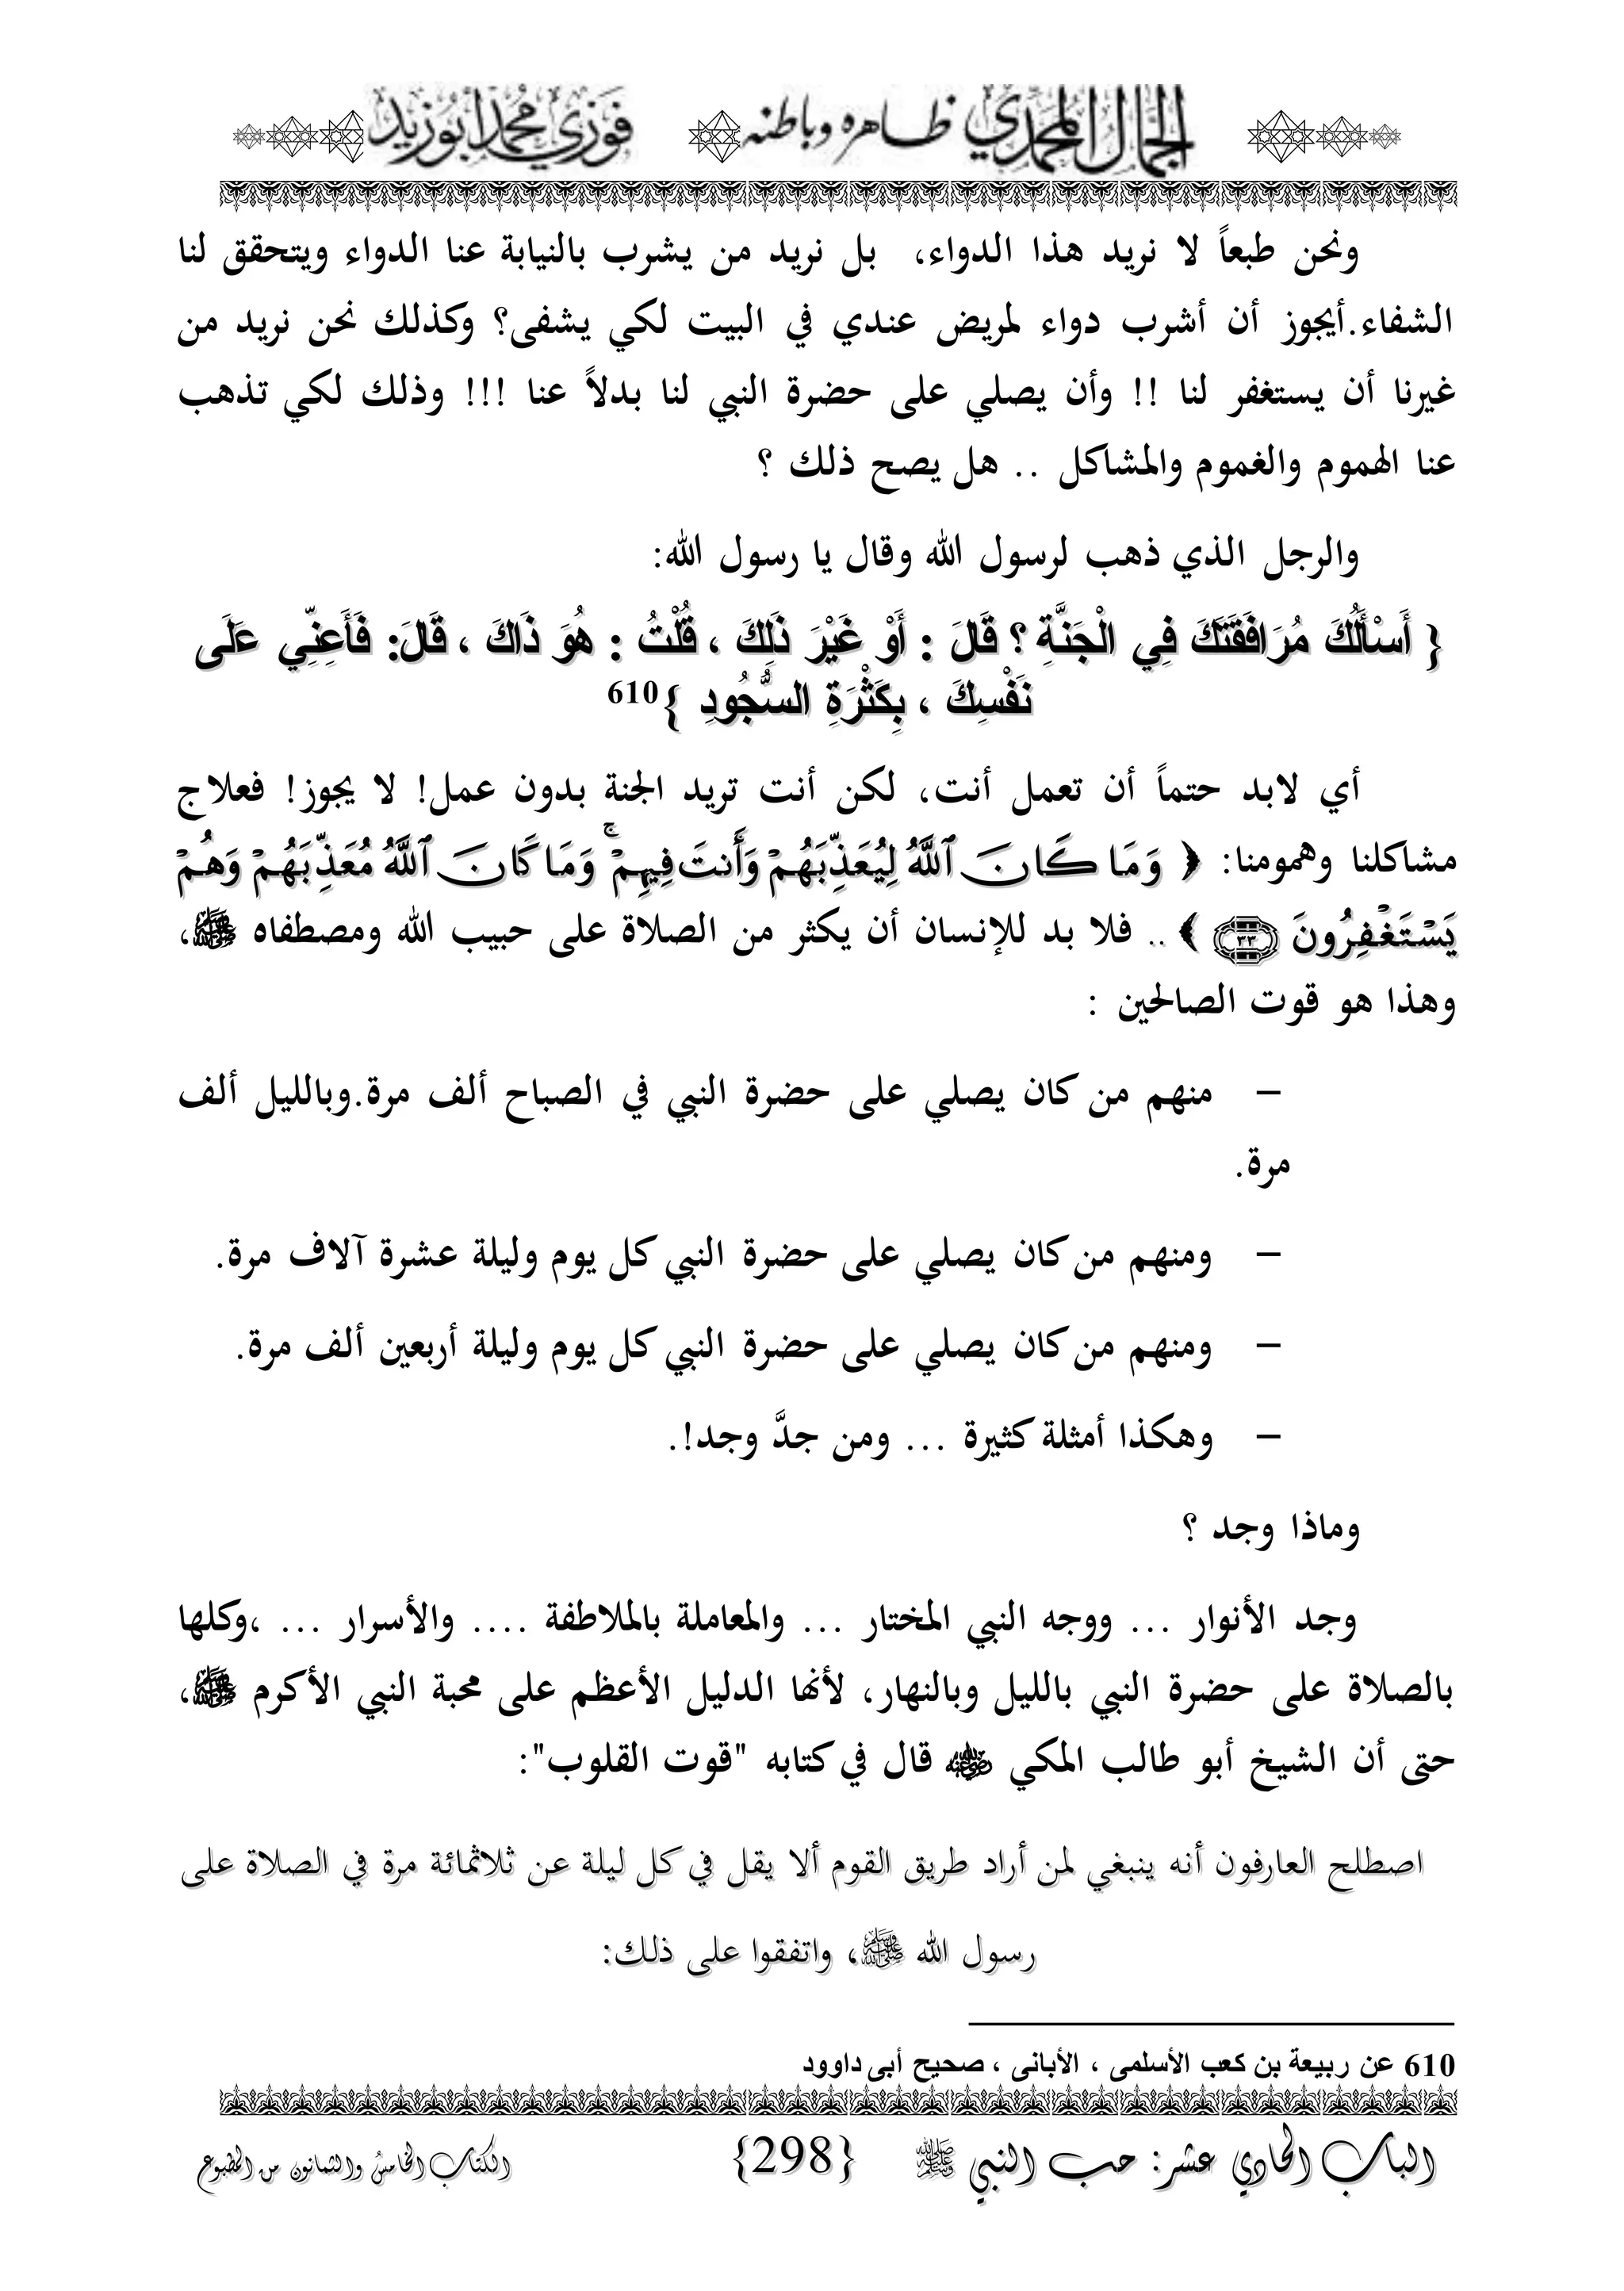 الجمال المحمدي ظاهره وباطنه فوزي محمد أبوزيد
ونحن طبعاً لا نريد هذا الدواء، بل نريد من يشرب بالنيابة عنا الدواء ويتحقق لنا
الشفاء.أيجوز أن أشرب دواء لمريض عندي في البيت لكي يشفى؟ وكذلك نحن نريد من
غيرنا أن يستغفر لنا !! وأن يصلي على حضرة النبي لنا بدلاً عنا !!! وذلك لكي تذهب
عنا الهموم والغموم والمشاكل .. هل يصح ذلك ؟
والرجل الذي ذهب لرسول الله وقال يا رسول الله:
{ أَسْأَلُكَ مُرَافَقَتَكَ فِي الْجَنَّةِ ؟ قَالَ : أَوْ غَيْرَ ذَلِكَ ، قُلْتُ : هُوَ ذَاكَ ، قَالَ: فَأَعِنِّي عَلَى
نَفْسِكَ ، بِكَثْرَةِ السُّجُودِ }610
أي لابد حتماً أن تعمل أنت، لكن أنت تريد الجنة بدون عمل! لا يجوز! فعلاج
مشاكلنا وهمومنا: ﴿ وَمَا كَانَ ٱللَّهُ لِيُعَذِّبَهُمْ وَأَنتَ فِيهِمْ ۚ وَمَا كَانَ ٱللَّهُ مُعَذِّبَهُمْ وَهُمْ
يَسْتَغْفِرُونَ ﴿٣٣﴾ ﴾ .. فلا بد للإنسان أن يكثر من الصلاة على حبيب الله ومصطفاه ﷺ،
وهذا هو قوت الصالحين :
- منهم من كان يصلي على حضرة النبي في الصباح ألف مرة.وبالليل ألف
مرة.
- ومنهم من كان يصلي على حضرة النبي كل يوم وليلة عشرة آلاف مرة.
- ومنهم من كان يصلي على حضرة النبي كل يوم وليلة أربعين ألف مرة.
- وهكذا أمثلة كثيرة ... ومن جدَّ وجد!.
وماذا وجد ؟
وجد الأنوار ... ووجه النبي المختار ... والمعاملة بالملاطفة .... والأسرار ... ،وكلها
بالصلاة على حضرة النبي بالليل وبالنهار، لأنها الدليل الأعظم على محبة النبي الأكرم ﷺ،
حتى أن الشيخ أبو طالب المكي رضي الله عنه قال في كتابه "قوت القلوب":
اصطلح العارفون أنه ينبغي لمن أراد طريق القوم ألا يقل في كل ليلة عن ثلاثمائة مرة في الصلاة على
رسول الله ﷺ، واتفقوا على ذلك:
610 عن ربيعة بن كعب الأسلمى ، الأبانى ، صحيح أبى داوود
الباب الحادي عشر: حب النبي ﷺ {298} الكتاب الخامس والثمانون من المطبوع